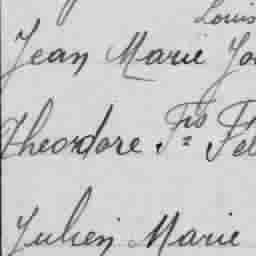 Louis
Jean Marie Jo
Theodore Fis Fél
Julien Marie